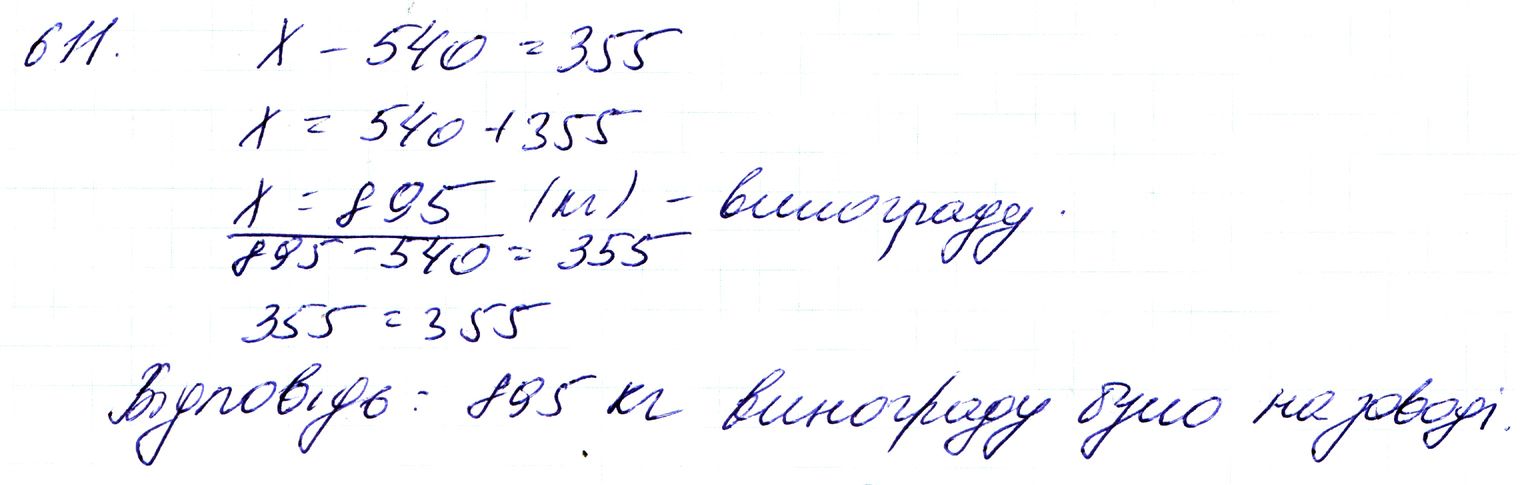 611. X - 540 = 355
X = 540 + 355
X = 895 (кг) - винограду.
895 - 540 = 355
355 = 355
Відповідь: 895 кг винограду було на заводі.